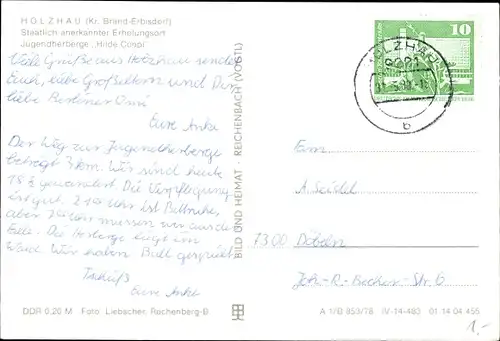 HOLZHAU (Kr. Brand-Erbisdorf)
Staatlich anerkannter Erholungsort
Jugendherberge „Hilde Coppi"
Viele Grüße aus Holzhau sendet
Euch, liebe Großeltern und Dir
liebe Berliner
Eure Anke
Der Weg zur Jugendherberge
beträgt 3 km. Wir sind heute
gewandert. Die Verpflegung
ist gut. 21 Uhr ist Bettruhe,
aber Uhr müssen wir
Die Herberge liegt im
Wald. Wir haben Ball gespielt
Tschüß
Eure Anke
DDR 0,20 M Foto: Liebscher, Rachenberg-B
BILD UND HEIMAT · REICHENBACH (VOGTL)
10
HOLZHAU
9201
b
Fam.
A. Seidel
7300 Döbeln
Joh.-R.-Becher-Str. 6
A 1/B 853/78 IV-14-483 01 14 04 455
1,-